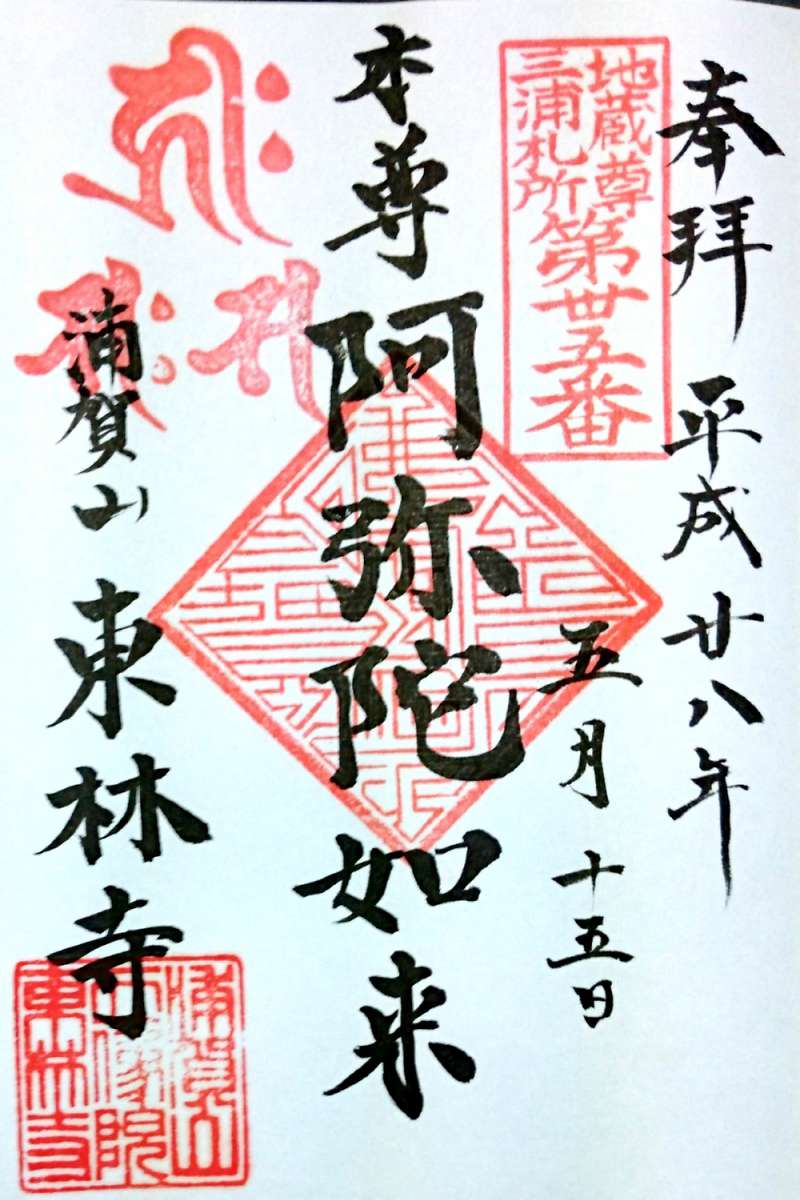 奉拝
平成廿八年
五月十五日
地蔵尊
三浦札所
第廿五番
本尊
阿弥陀如来
浦賀山
東林寺
浦賀山
東林寺